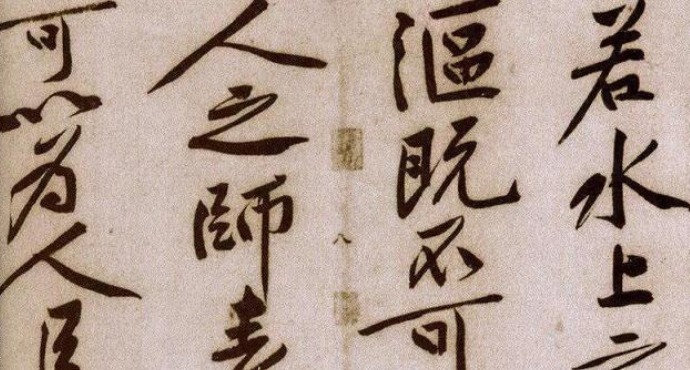 若水上之
漚既不可
人之師表
可以為人臣